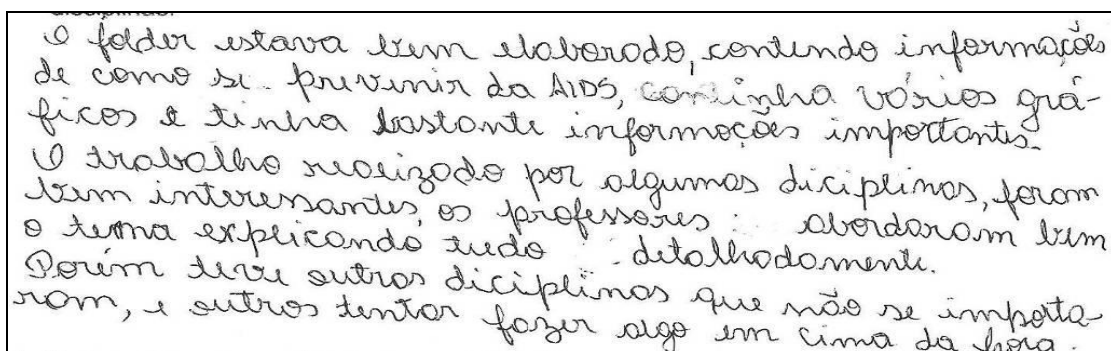 O folder estava bem elaborado, contendo informações
de como se prevenir da AIDS, continha vários grá-
ficos e tinha bastante informações importantes.
O trabalho realizado por algumas diciplinas, foram
bem interessantes, os professores abordaram bem
o tema explicando tudo detalhadamente.
Porém teve outras diciplinas que não se importa-
ram, e outros tentar fazer algo em cima da hora.